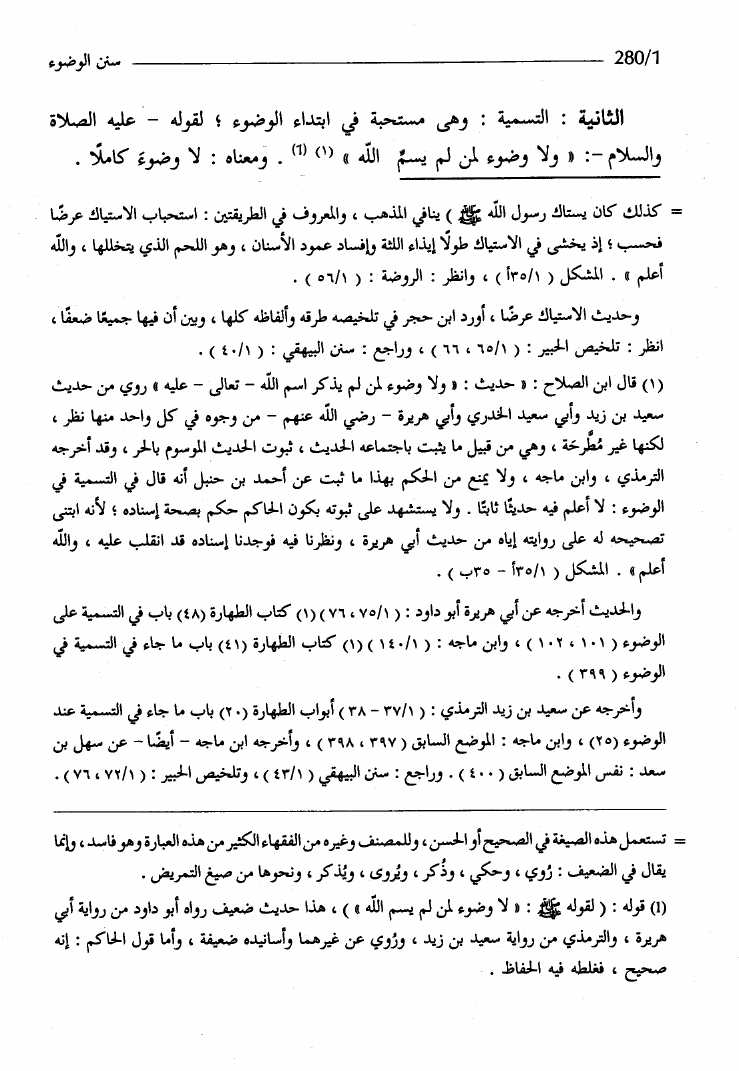 280/1 سنن الوضوء
الثانية : التسمية : وهى مستحبة في ابتداء الوضوء ؛ لقوله – عليه الصلاة
والسلام –: « ولا وضوء لمن لم يسمِّ الله » (١) (1) . ومعناه : لا وضوءَ كاملًا .
= كذلك كان يستاك رسول الله ﷺ ) ينافي المذهب ، والمعروف في الطريقتين : استحباب الاستياك عرضًا
فحسب ؛ إذ يخشى في الاستياك طولًا إيذاء اللثة وإفساد عمود الأسنان ، وهو اللحم الذي يتخللها ، والله
أعلم » . المشكل ( ٣٥/١أ ) ، وانظر : الروضة : ( ٥٦/١ ) .
وحديث الاستياك عرضًا ، أورد ابن حجر في تلخيصه طرقه وألفاظه كلها ، وبين أن فيها جميعًا ضعفًا ،
انظر : تلخيص الحبير : ( ٦٥/١ ، ٦٦ ) ، وراجع : سنن البيهقي : ( ٤٠/١ ) .
(١) قال ابن الصلاح : « حديث : « ولا وضوء لمن لم يذكر اسم الله – تعالى – عليه » روي من حديث
سعيد بن زيد وأبي سعيد الخدري وأبي هريرة – رضي الله عنهم – من وجوه في كل واحد منها نظر ،
لكنها غير مُطَّرحَة ، وهي من قبيل ما يثبت باجتماعه الحديث ، ثبوت الحديث الموسوم بالحر ، وقد أخرجه
الترمذي ، وابن ماجه ، ولا يمنع من الحكم بهذا ما ثبت عن أحمد بن حنبل أنه قال في التسمية في
الوضوء : لا أعلم فيه حديثًا ثابتًا . ولا يستشهد على ثبوته بكون الحاكم حكم بصحة إسناده ؛ لأنه ابتنى
تصحيحه له على روايته إياه من حديث أبي هريرة ، ونظرنا فيه فوجدنا إسناده قد انقلب عليه ، والله
أعلم» . المشكل ( ٣٥/١أ – ٣٥ب ) .
والحديث أخرجه عن أبي هريرة أبو داود : ( ٧٥/١ ، ٧٦ ) (١) كتاب الطهارة (٤٨) باب في التسمية على
الوضوء ( ١٠١ ، ١٠٢ ) ، وابن ماجه : ( ١٤٠/١ ) (١) كتاب الطهارة (٤١) باب ما جاء في التسمية في
الوضوء ( ٣٩٩ ) .
وأخرجه عن سعيد بن زيد الترمذي : ( ٣٧/١ – ٣٨ ) أبواب الطهارة (٢٠) باب ما جاء في التسمية عند
الوضوء (٢٥) ، وابن ماجه : الموضع السابق ( ٣٩٧ ، ٣٩٨ ) ، وأخرجه ابن ماجه – أيضًا – عن سهل بن
سعد : نفس الموضع السابق ( ٤٠٠ ) . وراجع : سنن البيهقي ( ٤٣/١ ) ، وتلخيص الحبير : ( ٧٢/١ ، ٧٦ ) .
= تستعمل هذه الصيغة في الصحيح أو الحسن ، وللمصنف وغيره من الفقهاء الكثير من هذه العبارة وهو فاسد ، وإنما
يقال في الضعيف : رُوي ، وحكي ، وذُكر ، ويُروى ، ويُذكر ، ونحوها من صيغ التمريض .
(1) قوله : ( لقوله ﷺ : « لا وضوء لمن لم يسم الله » ) ، هذا حديث ضعيف رواه أبو داود من رواية أبي
هريرة ، والترمذي من رواية سعيد بن زيد ، ورُوي عن غيرهما وأسانيده ضعيفة ، وأما قول الحاكم : إنه
صحيح ، فغلطه فيه الحفاظ .